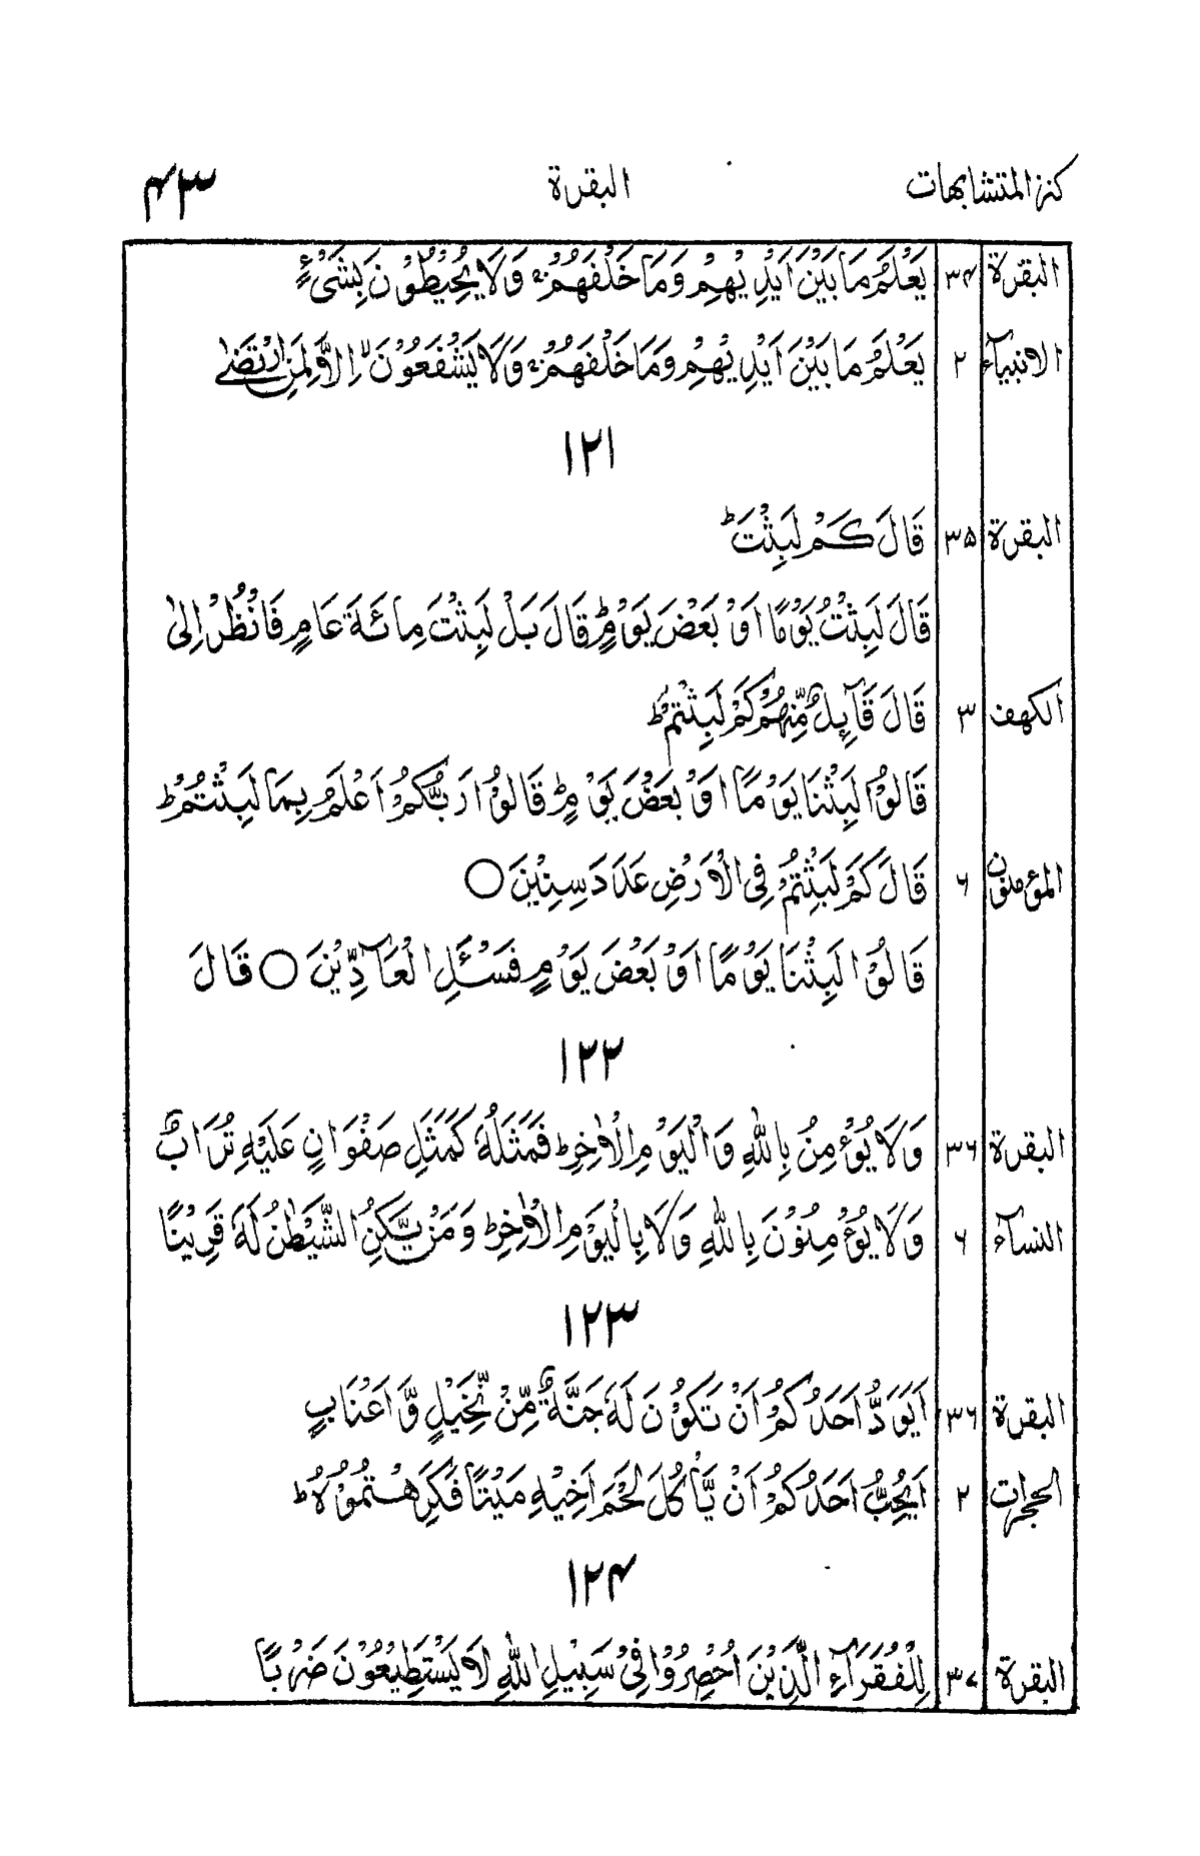 كنز المتشابهات البقرة ۴۳
البقرة ۳۴ يَعْلَمُ مَا بَيْنَ اَيْدِيْهِمْ وَمَا خَلْفَهُمْ ۚ وَلَا يُحِيْطُوْنَ بِشَىْءٍ
الانبيآء ۲ يَعْلَمُ مَا بَيْنَ اَيْدِيْهِمْ وَمَا خَلْفَهُمْ وَلَا يَشْفَعُوْنَ ۙ اِلَّا لِمَنِ ارْتَضٰى
۱۲۱
البقرة ۳۵ قَالَ كَمْ لَبِثْتَ ؕ
قَالَ لَبِثْتُ يَوْمًا اَوْ بَعْضَ يَوْمٍ ؕ قَالَ بَلْ لَبِثْتَ مِائَةَ عَامٍ فَانْظُرْ اِلٰى
الكهف ۳ قَالَ قَآئِلٌ مِّنْهُمْ كَمْ لَبِثْتُمْ ؕ
قَالُوْا لَبِثْنَا يَوْمًا اَوْ بَعْضَ يَوْمٍ ؕ قَالُوْا رَبُّكُمْ اَعْلَمُ بِمَا لَبِثْتُمْ ؕ
المؤمنون ۶ قَالَ كَمْ لَبِثْتُمْ فِى الْاَرْضِ عَدَدَ سِنِيْنَ ○
قَالُوْا لَبِثْنَا يَوْمًا اَوْ بَعْضَ يَوْمٍ فَسْئَلِ الْعَآدِّيْنَ ○ قَالَ
۱۲۲
البقرة ۳۶ وَلَا يُؤْمِنُ بِاللّٰهِ وَالْيَوْمِ الْاٰخِرِ ؕ فَمَثَلُهٗ كَمَثَلِ صَفْوَانٍ عَلَيْهِ تُرَابٌ
النسآء ۶ وَلَا يُؤْمِنُوْنَ بِاللّٰهِ وَلَا بِالْيَوْمِ الْاٰخِرِ ؕ وَمَنْ يَّكُنِ الشَّيْطٰنُ لَهٗ قَرِيْنًا
۱۲۳
البقرة ۳۶ اَيَوَدُّ اَحَدُكُمْ اَنْ تَكُوْنَ لَهٗ جَنَّةٌ مِّنْ نَّخِيْلٍ وَّاَعْنَابٍ
الحجرات ۲ اَيُحِبُّ اَحَدُكُمْ اَنْ يَّاْكُلَ لَحْمَ اَخِيْهِ مَيْتًا فَكَرِهْتُمُوْهُ ؕ
۱۲۴
البقرة ۳۷ لِلْفُقَرَآءِ الَّذِيْنَ اُحْصِرُوْا فِىْ سَبِيْلِ اللّٰهِ لَا يَسْتَطِيْعُوْنَ ضَرْبًا